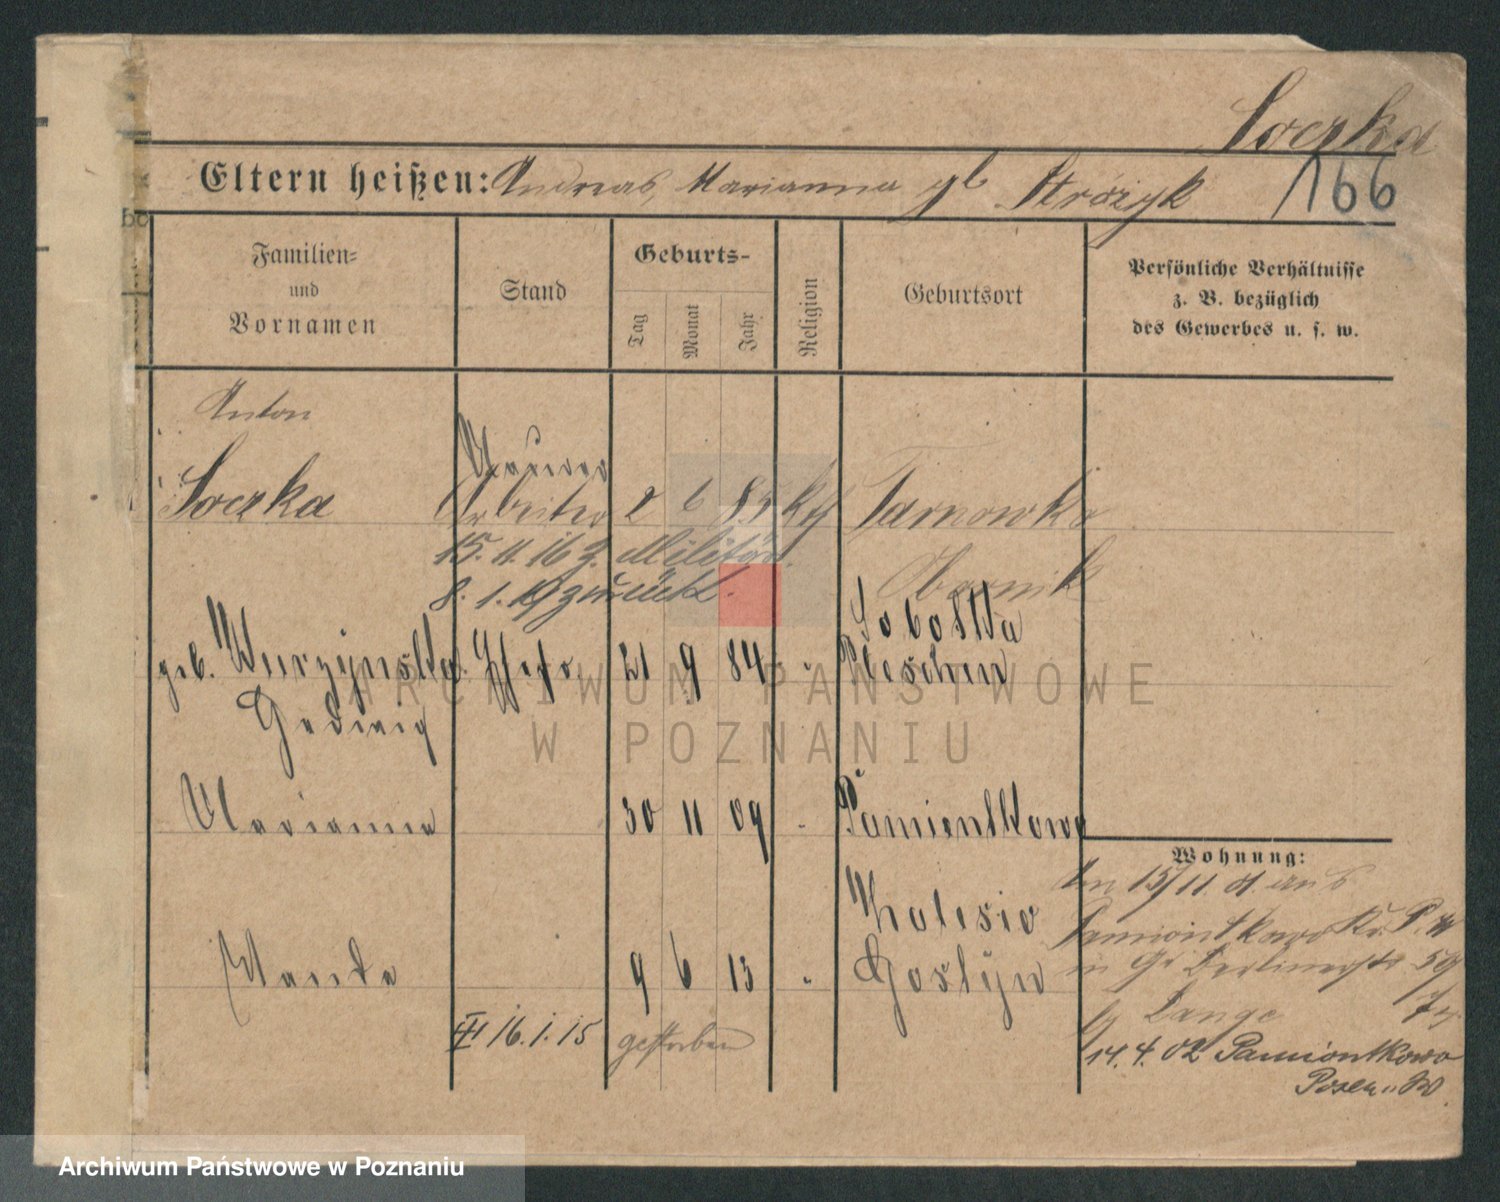 Soczka
Eltern heißen: Andreas, Marianna gb Stróżyk
166
Familien=
und
Vornamen
Stand
Geburts-
Tag
Monat
Jahr
Religion
Geburtsort
Persönliche Verhältnisse
z. B. bezüglich
des Gewerbes u. s. w.
Anton
Maurer
Soczka Arbeiter 2 6 85 kth Tarnowko
15. 11. 16 z. Militär. Obornik
8. 1. 19 zurück.
Sobotka
geb. Wurzynska Ehefr. 21 9 84 " Pleschen
Hedwig
Marianna 30 11 09 " Pamientkowo
Wohnung:
Am 15/11. 01 aus
Kolesie Pamiontkowo Kr. P. W
Wanda 9 6 13 " Gostyn in Gr Berlinerstr 59
b/ Lange
III 16. 1. 15 gestorben
14. 4. 02 Pamiontkowo
Posen W
ARCHIWUM PAŃSTWOWE
W POZNANIU
Archiwum Państwowe w Poznaniu